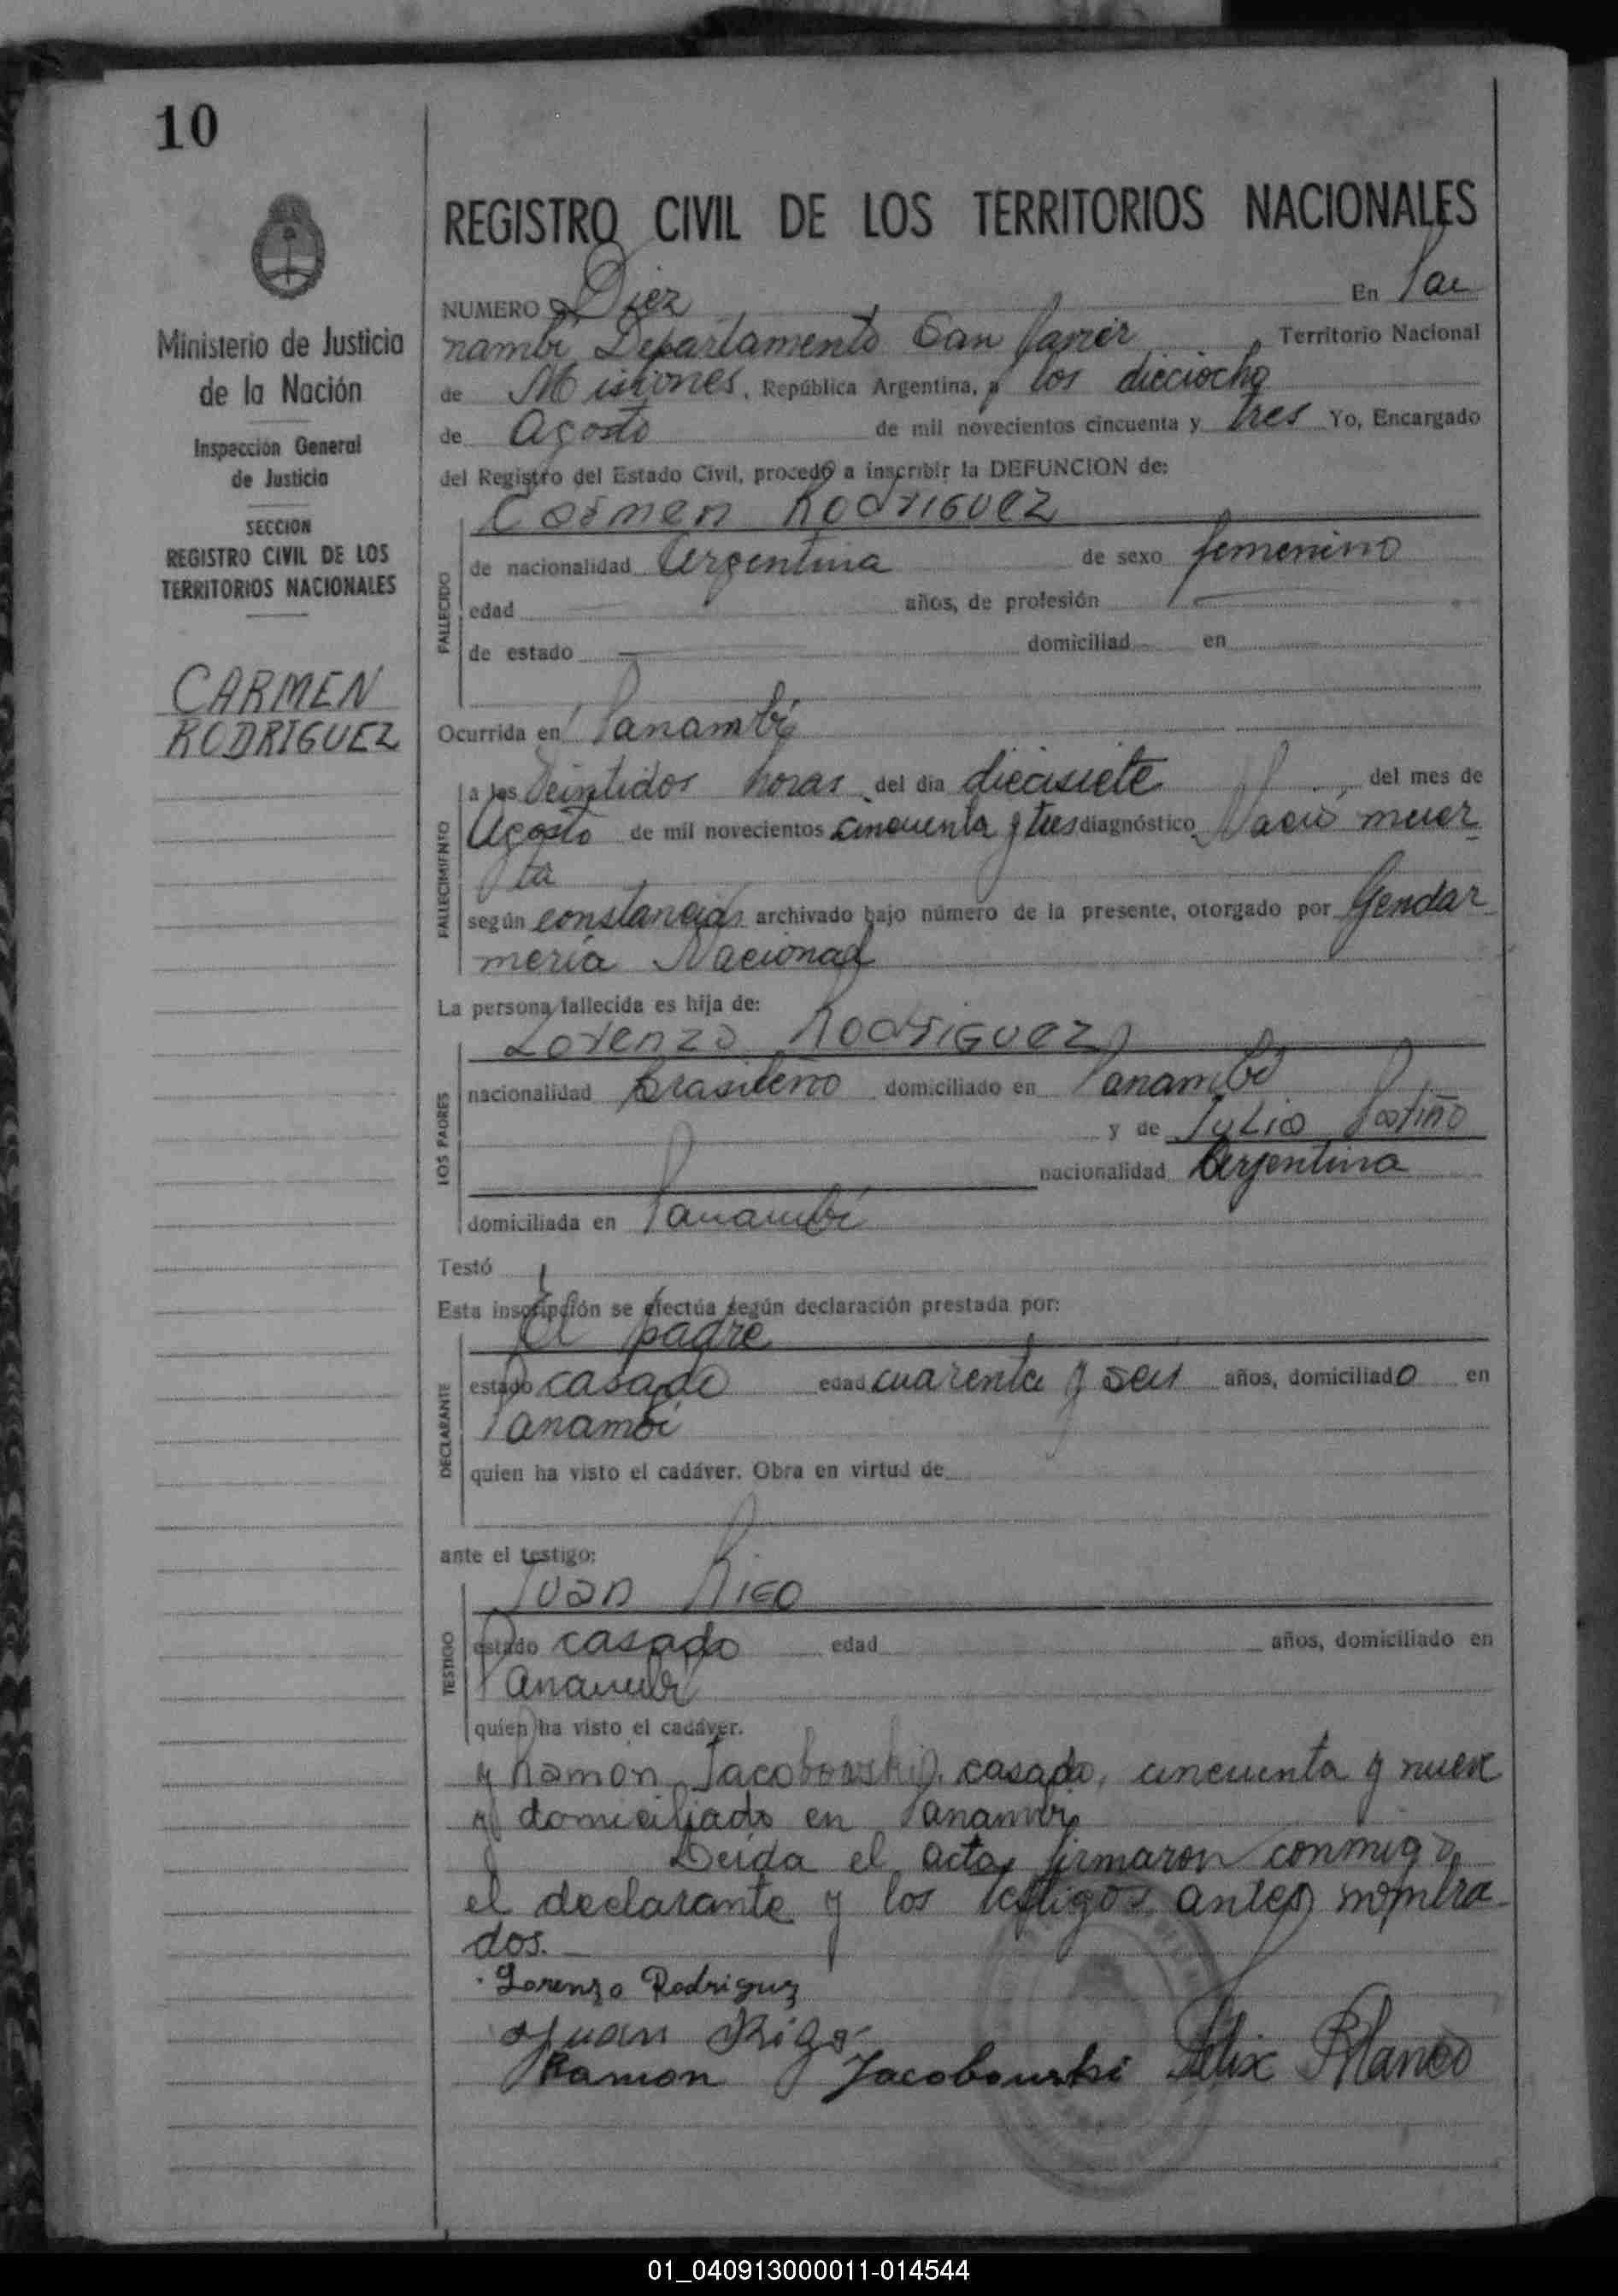 10
REGISTRO CIVIL DE LOS TERRITORIOS NACIONALES
Ministerio de Justicia
de la Nación
Inspección General
de Justicia
SECCION
REGISTRO CIVIL DE LOS
TERRITORIOS NACIONALES
CARMEN
RODRIGUEZ
NUMERO Diez En Pa
nambí Departamento San Javier, Territorio Nacional
de Misiones, República Argentina, a los dieciocho
de Agosto de mil novecientos cincuenta y tres Yo, Encargado
del Registro del Estado Civil, procedo a inscribir la DEFUNCION de:
Carmen Rodriguez
FALLECIDO
de nacionalidad Argentina de sexo femenino
edad años, de profesión
de estado domiciliad en
Ocurrida en Panambí
FALLECIMIENTO
a las Veintidos horas del día diecisiete del mes de
Agosto de mil novecientos cincuenta y tres diagnóstico Nació muer-
ta
según constancia archivado bajo número de la presente, otorgado por Gendar
mería Nacional
La persona fallecida es hija de:
Lorenzo Rodriguez
LOS PADRES
nacionalidad brasileño domiciliado en Panambí
y de Julia
nacionalidad Argentina
domiciliada en Panambí
Testó
Esta inscripción se efectúa según declaración prestada por:
el padre
DECLARANTE
estado casado edad cuarenta y seis años, domiciliado en
Panambí
quien ha visto el cadáver. Obra en virtud de
ante el testigo:
Juan Rigo
TESTIGO
estado casado edad años, domiciliado en
Panambí
quien ha visto el cadáver.
y Ramon Jacobowski, casado, cincuenta y nueve
y domiciliado en Panambí
Leida el acta, firmaron conmigo,
el declarante y los testigos antes nombra
dos.
Lorenzo Rodriguz
Juan Rigo
Ramon Jacobowski Félix Blanco
01_040913000011-014544